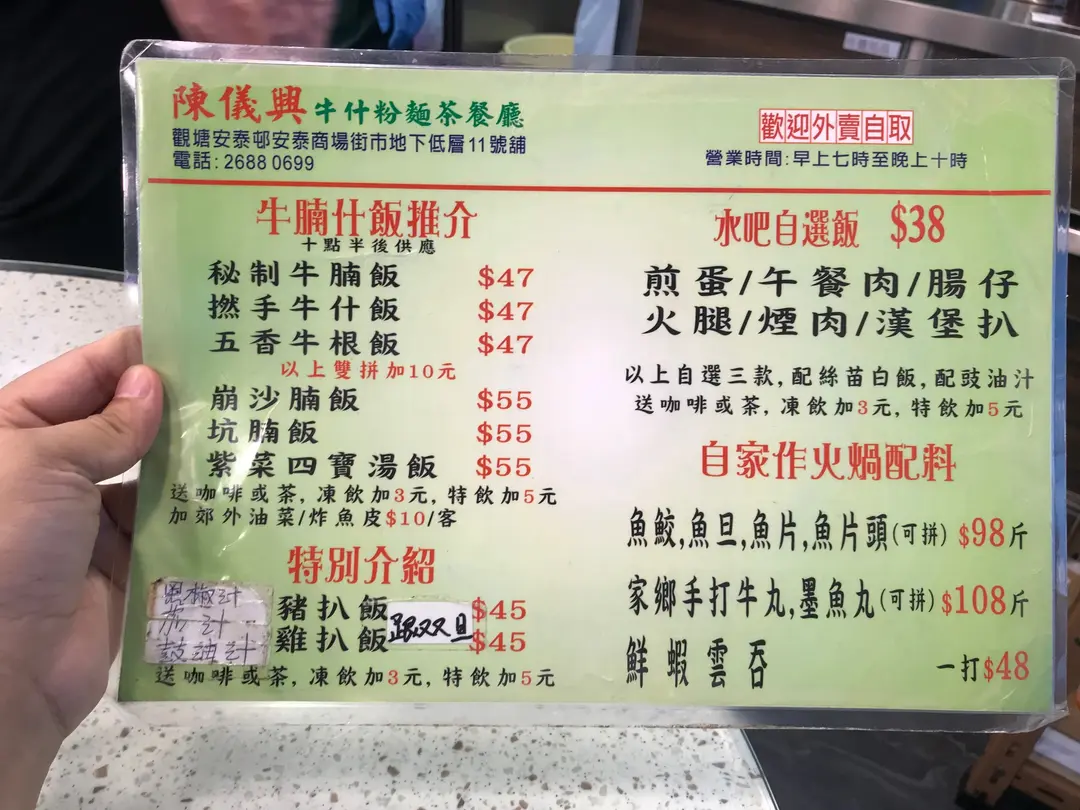 陳儀興牛什粉麵茶餐廳
觀塘安泰邨安泰商場街市地下低層11號舖
電話:2688 0699
歡迎外賣自取
營業時間:早上七時至晚上十時
牛腩什飯推介
十點半後供應
秘制牛腩飯 $47
撚手牛什飯 $47
五香牛根飯 $47
以上雙拼加10元
崩沙腩飯 $55
坑腩飯 $55
紫菜四寶湯飯 $55
送咖啡或茶,凍飲加3元,特飲加5元
加郊外油菜/炸魚皮$10/客
特別介紹
黑椒汁
茄汁
鼓油汁
豬扒飯 $45
雞扒飯 $45
跟双旦
送咖啡或茶,凍飲加3元,特飲加5元
水吧自選飯 $38
煎蛋/午餐肉/腸仔
火腿/煙肉/漢堡扒
以上自選三款,配絲苗白飯,配豉油汁
送咖啡或茶,凍飲加3元,特飲加5元
自家作火煱配料
魚鮫,魚旦,魚片,魚片頭(可拼) $98斤
家鄉手打牛丸,墨魚丸(可拼)$108斤
鮮蝦雲吞 一打$48